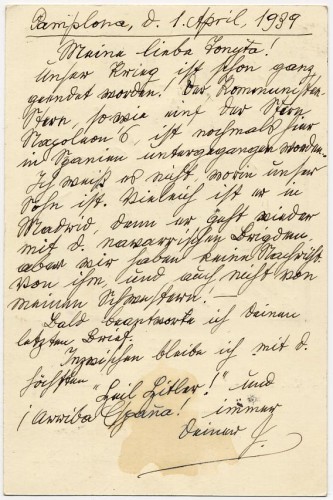 Pamplona, d. 1. April, 1939
Meine liebe Tonyta!
Unser Krieg ist schon ganz
geendet worden! Der Kommunisten
Stern, sowie einst der Stern
Napoleon's ist nochmals hier
in Spanien untergegangen worden.
Ich weiß es nicht, worin unser
Sohn ist. Vielleich ist er in
Madrid, denn er geht wieder
mit d. navarrischen Brigden
aber wir haben keine Nachricht
von ihm, und auch nicht von
meinen Schwestern! —
Bald beantworte ich deinen
letzten Brief.
Inzwischen bleibe ich mit d.
höchsten "Heil Hitler!" und
¡Arriba España! immer
deiner